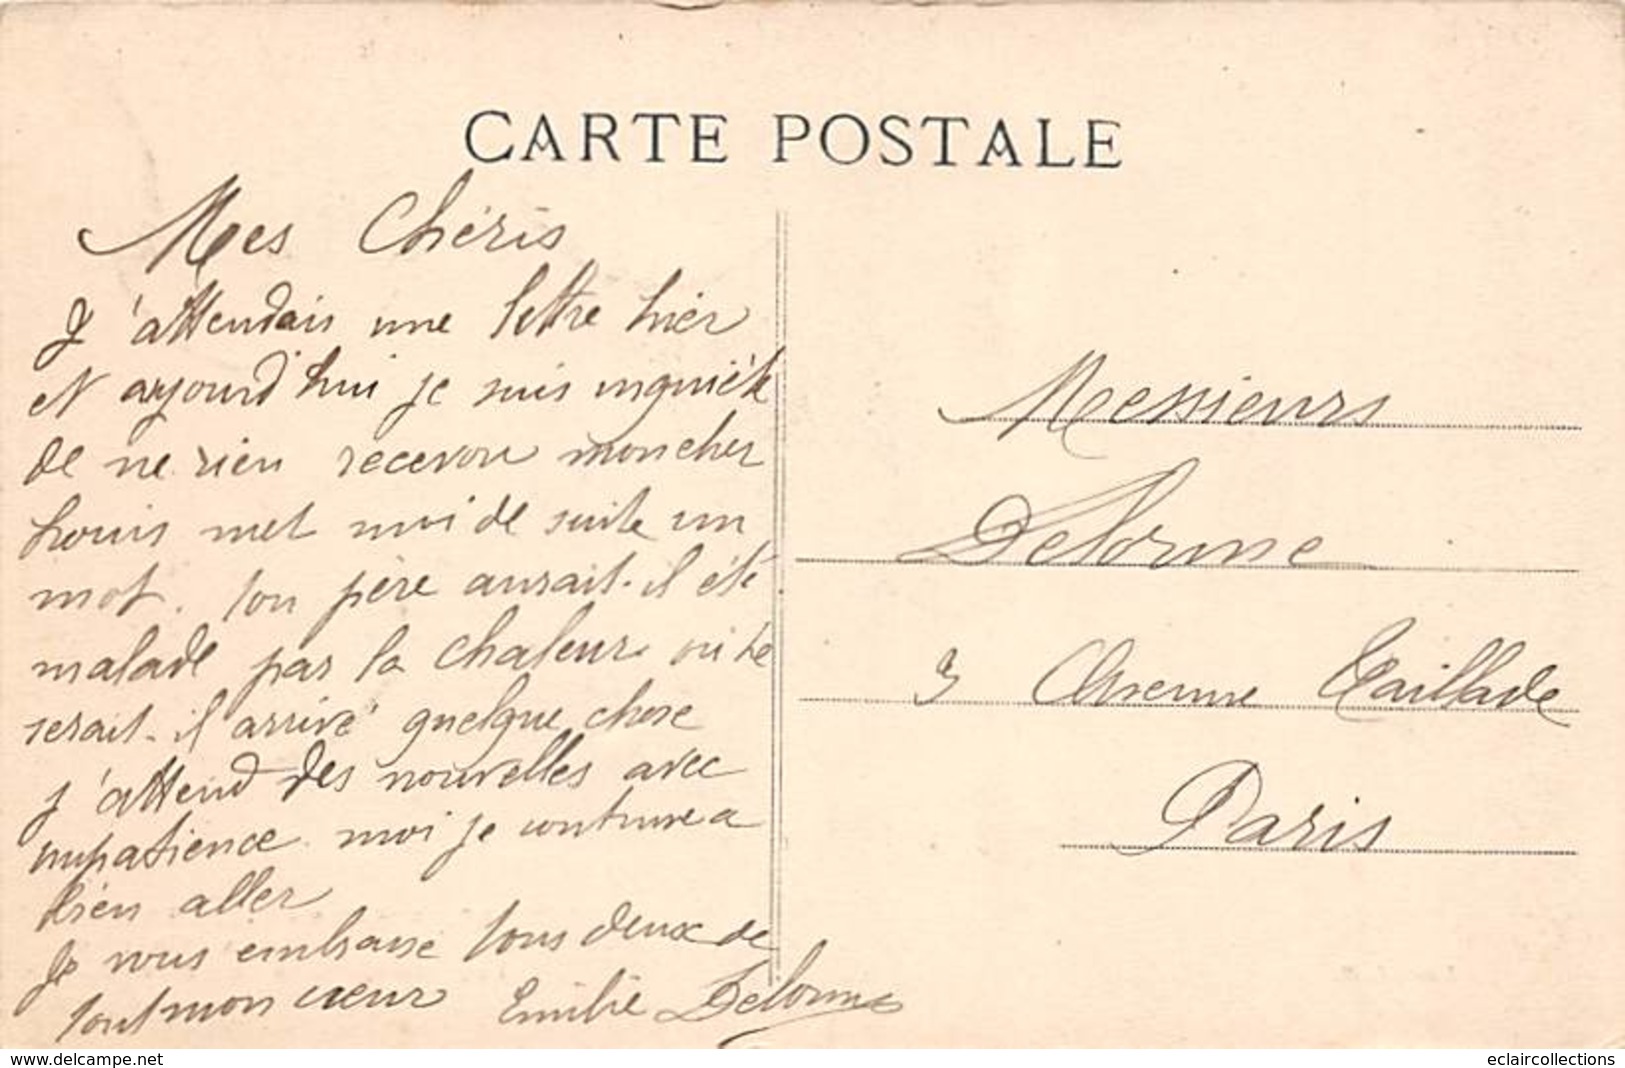 CARTE POSTALE
Mes Chéris
J'attendais une lettre hier
et aujourd'hui je suis inquiète
de ne rien recevoir mon cher
Louis met moi de suite un
mot. ton père aurait-il été
malade par la chaleur ou te
serait-il arrivé quelque chose
j'attend des nouvelles avec
impatience moi je continue a
bien aller
Je vous embrasse tous deux de
tout mon cœur Emilie Delorme
Messieurs
Delorme
3 Avenue Taillade
Paris
www.delcampe.net
eclaircollections